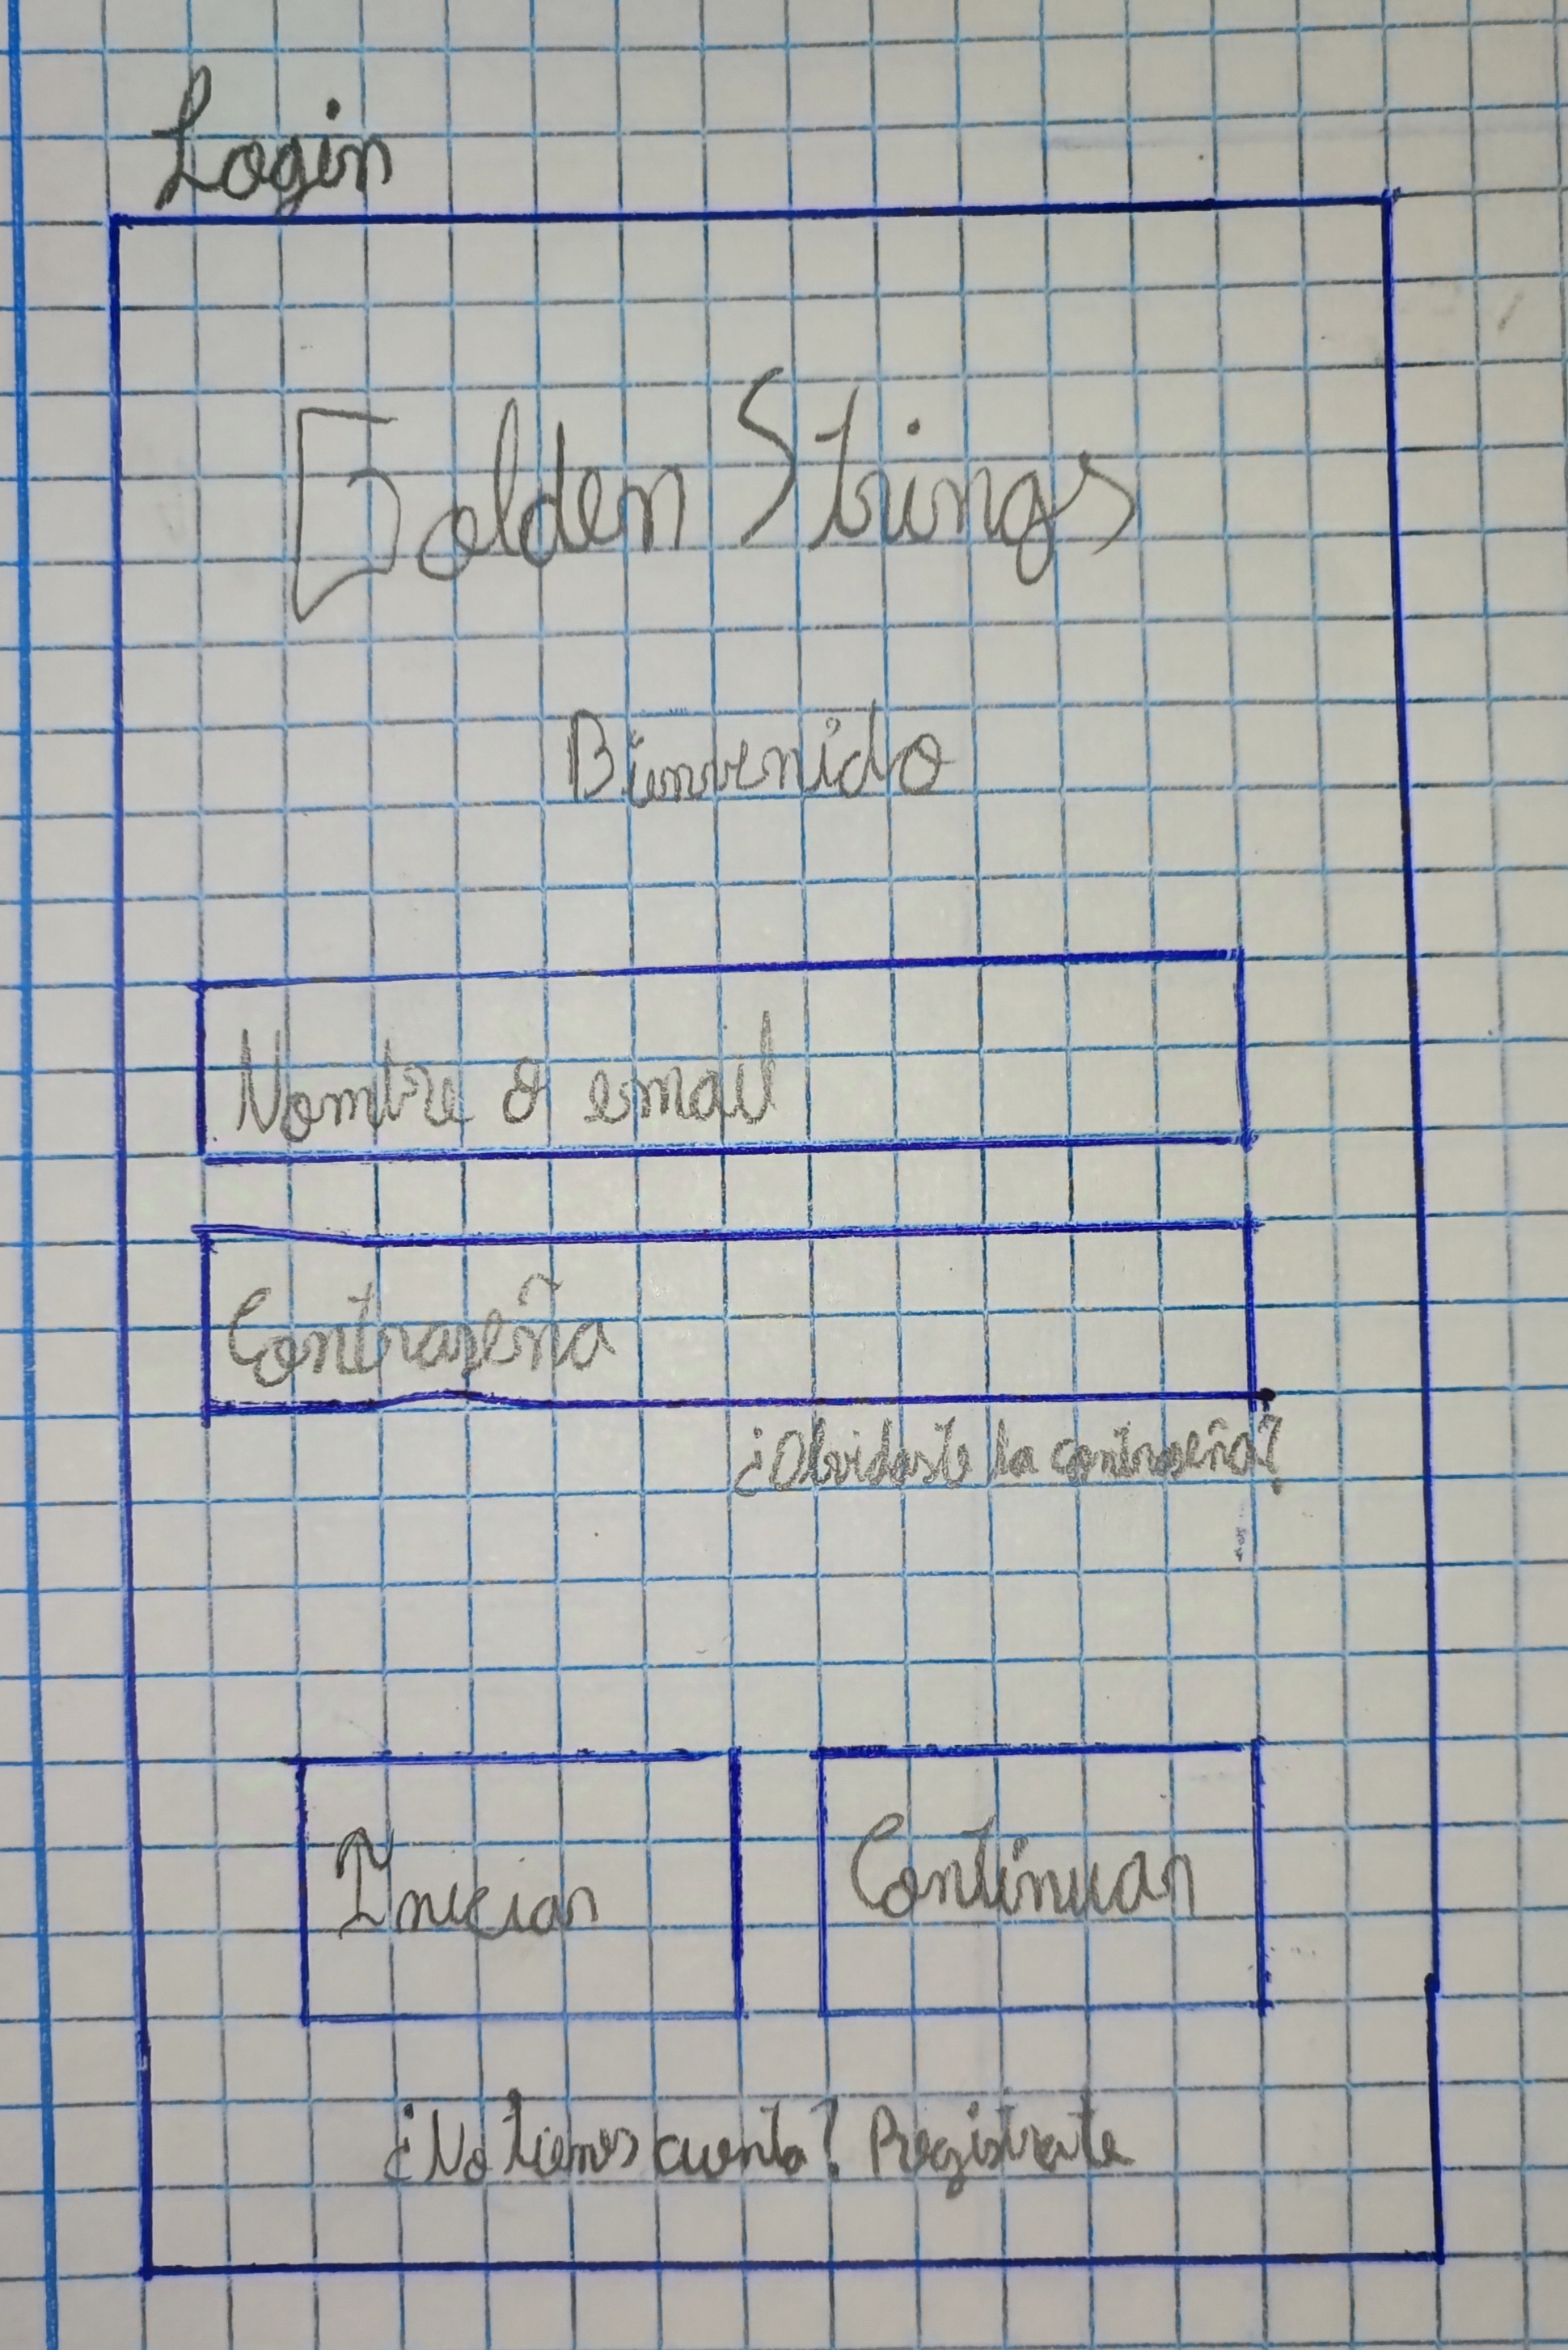 Login
Golden Strings
Bienvenido
Nombre o email
Contraseña
¿Olvidaste la contraseña?
Iniciar
Continuar
¿No tienes cuenta? Registrate